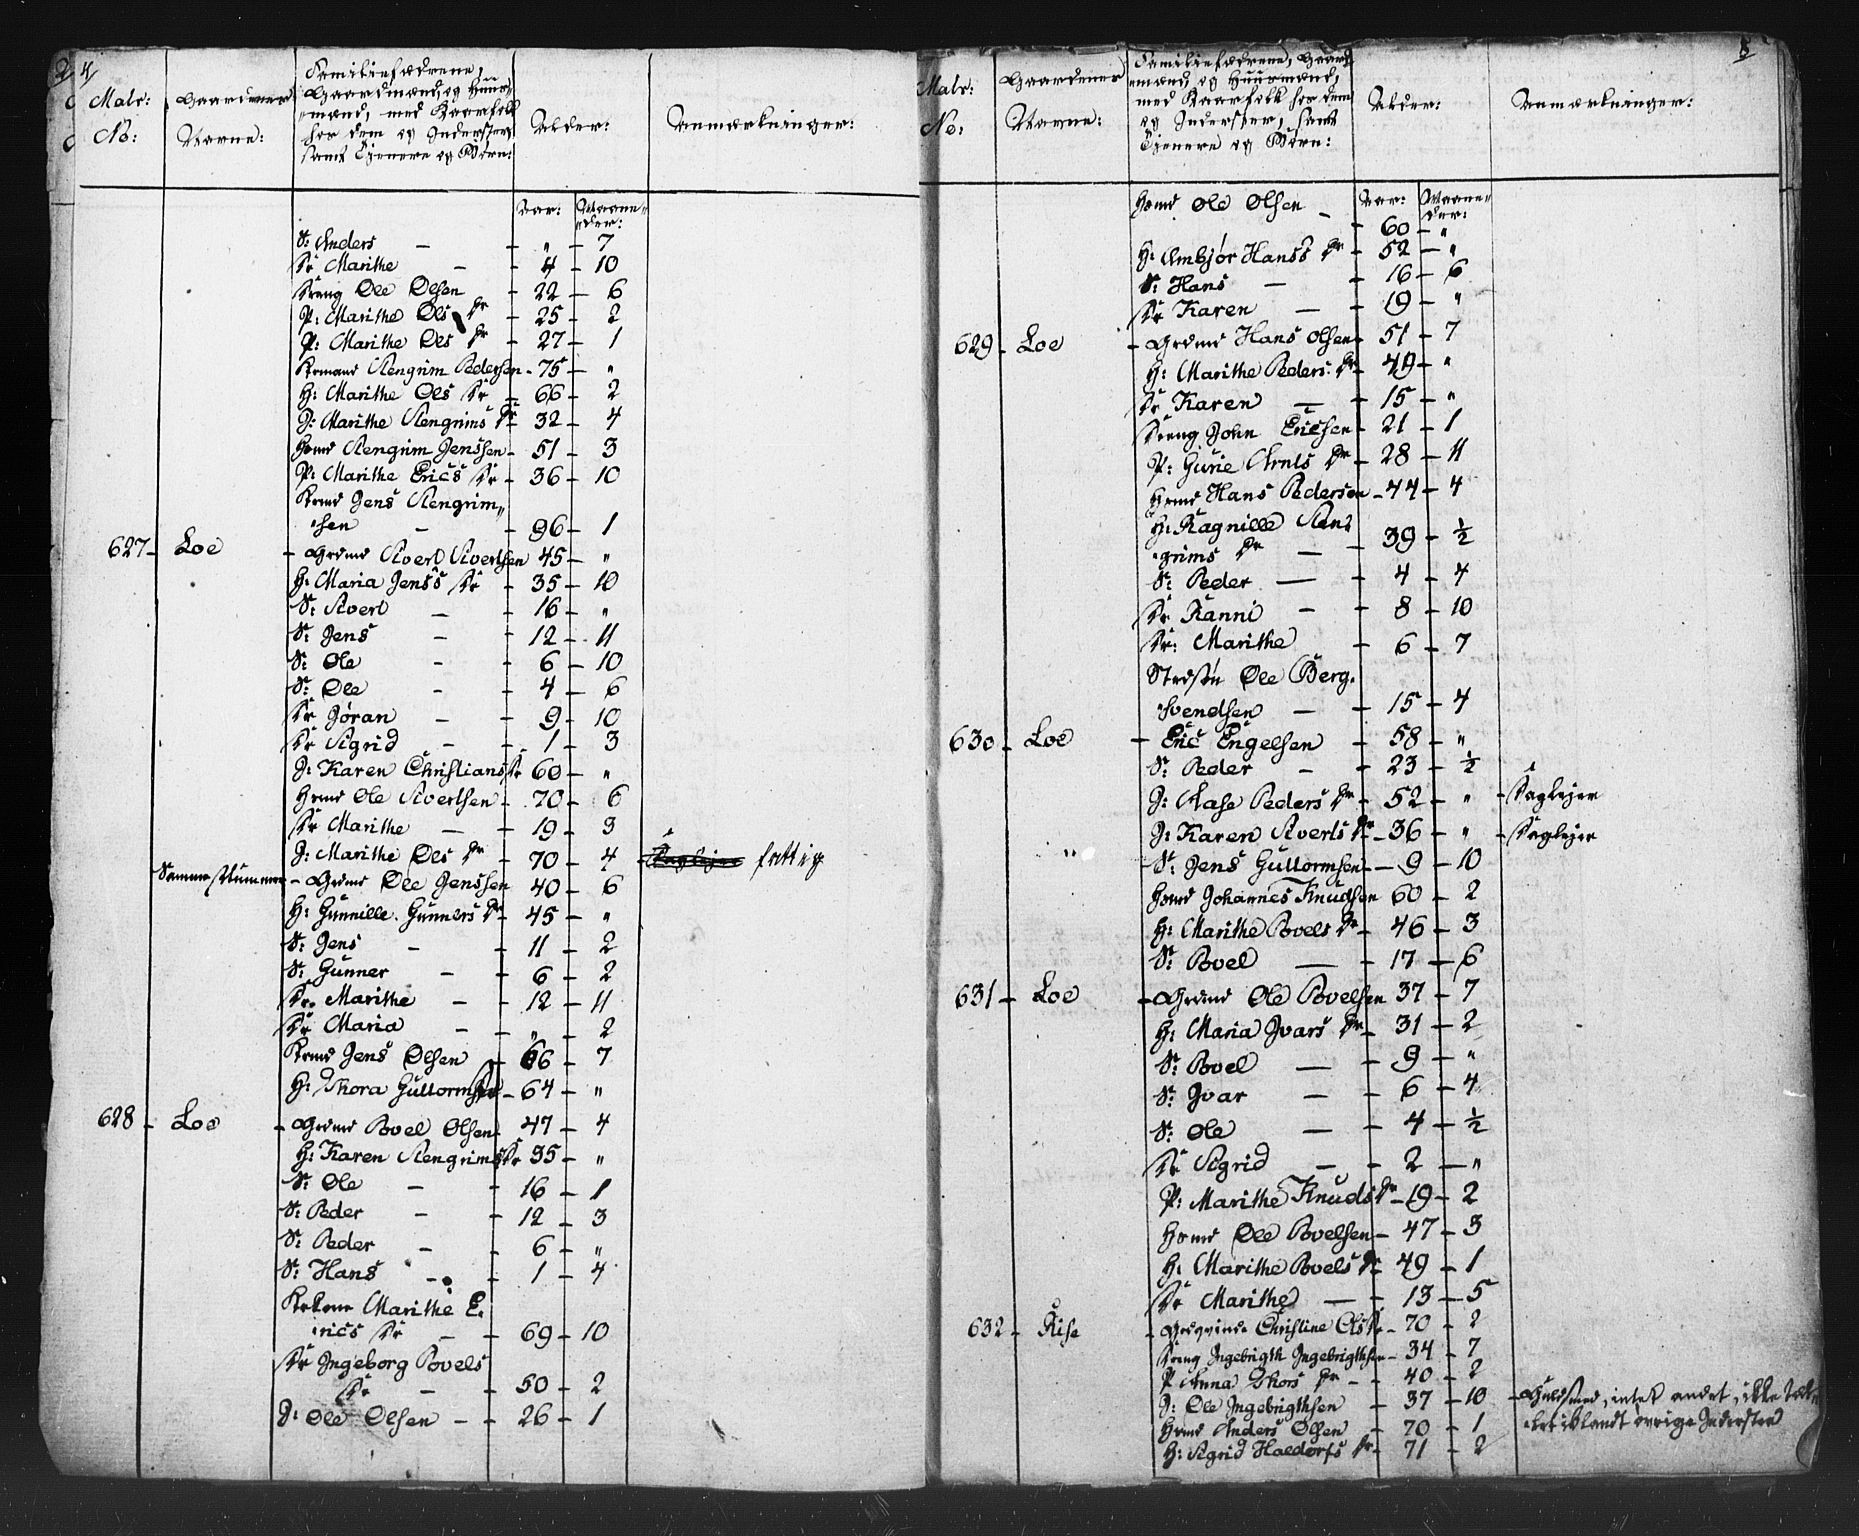 4
Matr: No:
Gaardenes Navne:
Familiefædrene,
Gaardmænd, og Huus-
mænd, med Kaarfolk
hos dem og Inderster,
samt Tjenere og Børn:
Alder:
Anmærkninger:
Aar: Maane-
der:
S: Anders — - " - 7
Dr Marithe - 4 - 10
Dreng Ole Olsen - 22 - 6
P: Marithe Ols Dr - 25 - 2
P: Marithe Ols Dr - 27 - 1
Krmand Stengrim Pedersen - 75 - "
H: Marithe Ols Dr - 66 - 2
J: Marithe Stengrims Dr - 32 - 4
Hsmd Stengrim Jenssen - 51 - 3
P: Marithe Erics Dr - 36 - 10
Krmd Jens Stengrim-
sen — - 96 - 1
627 - Loe - Grdmd Sivert Sivertsen 45 - "
H: Maria Jens's Dr - 35 - 10
S: Sivert — 16 - "
S: Jens - 12 - 11
S: Ole - 6 - 10
S: Ole - 4 - 6
Dr Jøran - 9 - 10
Dr Sigrid - 1 - 3
J: Karen Christians Dr 60 - "
Hsmd Ole Sivertsen - 70 - 6
Dr Marithe — 19 - 3
J: Marithe Ols Dr - 70 - 4 - fattig
Samme Nummer - Grdmd Ole Jenssen 40 - 6
H: Gunnille Gunners Dr - 45 - "
S: Jens - 11 - 2
S: Gunner - 6 - 2
Dr. Marithe - 12 - 11
Dr Maria - " - 2
Krmd Jens Olsen - 66 - 7
H: Thora Guttorms Dr - 64 - "
628 - Loe - Grdmd Povel Olsen - 47 - 4
H: Karen Stengrims Dr 35 - "
S: Ole - 16 - 1
S: Peder - 12 - 3
S: Peder - 6 - "
S: Hans - 1 - 4
Krkone Marithe E-
rics Dr - 69 - 10
Dr Ingeborg Povels
Dr - 50 - 2
J: Ole Olsen - 26 - 1
Matr: No:
Gaardenes Navne:
Familiefædrene, Gaard-
mænd, og Huusmænd,
med Kaarfolk hos dem
og Inderster, samt
Tjenere og Børn:
Alder:
Anmærkninger:
Aar: Maane-
der:
Hsmd Ole Olsen
- 60 - "
H: Ambjør Hans's Dr - 52 - "
S: Hans - 16 - 6
Dr Karen - 19 - "
629 - Loe - Grdmd Hans Olsen - 51 - 7
H: Marithe Peders Dr - 49 - "
Dr Karen — 15 - "
Dreng John Ericsen - 21 - 1
P: Gurie Arnts Dr - 28 - 11
Hsmd Hans Pedersen - 44 - 4
H: Ragnille Sten-
grims Dr — 39 - ½
S: Peder — 4 - 4
Dr Ranni - 8 - 10
Dr: Marithe - 6 - 7
Stedsøn Ole Berg-
svendsen — 15 - 4
630 - Loe - Eric Engelsen - 58 - "
S: Peder - 23 - ½
J: Aase Peders Dr - 52 - " - Daglejer
J: Karen Siverts Dr - 36 - " - Daglejer
" - S: Jens Guttormsen - 9 - 10
Hsmd Johannes Knudsen 60 - 2
H: Marithe Povels Dr - 46 - 3
S: Povel — 17 - 6
631 - Loe - Grdmd Ole Povelsen 37 - 7
H: Maria Ivars Dr - 31 - 2
S: Povel — 9 - "
S: Ivar - 6 - 4
S: Ole - 4 - ½
Dr Sigrid - 2 - "
P: Marithe Knuds Dr - 19 - 2
Hsmd Ole Povelsen - 47 - 3
H: Marithe Povels Dr - 49 - 1
Dr Marithe — 13 - 5
632 - Rise - Grdqvinde Christine Ols Dr - 70 - 2
Dreng Ingebrigth Ingebrigthsen - 34 - 7
P: Anna Thors Dr - 40 - 2
J: Ole Ingebrigthsen 37 - 10 - Guldsmed, intet andet, ikke
iblandt øvrige Inderster
Hsmd Anders Olsen - 70 - 1
H: Sigrid Haldors Dr - 71 - 2